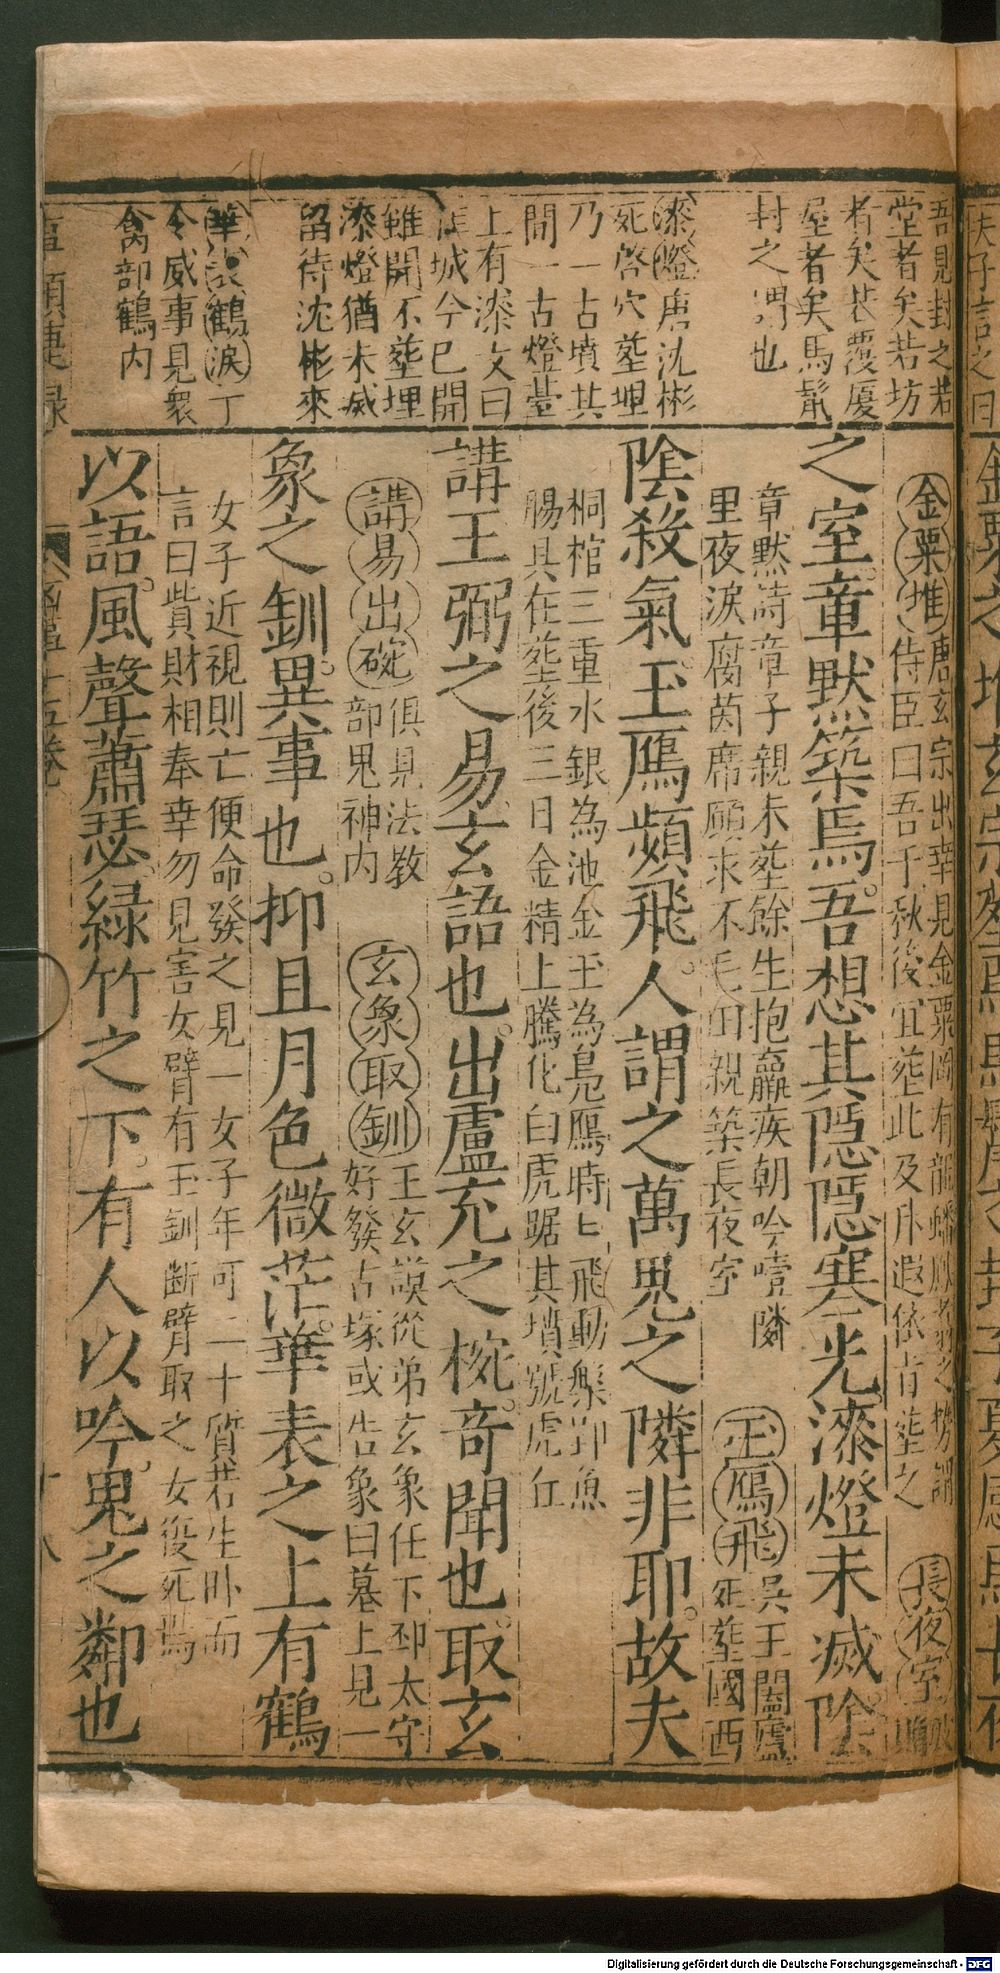 吾見封之若
堂者矣若坊
者矣若覆廈
屋者矣馬鬛
封之謂也
漆燈唐沈彬
死啓穴塟埋
乃一古墳其
間一古燈䑓
上有漆文曰
佳城今已開
雖開不塟埋
漆燈猶未滅
留待沈彬來
華表鶴淚丁
令威事見衆
禽部鶴内
金粟堆唐玄宗出幸見金粟岡有龍蟠鳳翥之勢謂
侍臣曰吾千秋後宜塟此及升遐依肯塟之
長夜室
之室章默築焉。吾想其隱隱寒光。漆燈未滅。陰
章默詩章子親未塟餘生抱羸疾朝吟噎隣
里夜淚腐茵席願求不毛田親築長夜室
玉鴈飛吳王闔廬
死塟國西
陰殺氣。玉鴈頻飛。人謂之萬鬼之隣非耶。故夫
桐棺三重水銀為池金玉為鳬鴈時飛動槃郢魚
腸具在塟後三日金精上騰化白虎踞其墳號虎丘
講王弼之易玄語也。出盧充之椀。奇聞也。取玄
講易出碗俱見法教
部鬼神内
玄象取釧王玄謨從弟玄象任下邳太守
好發古塚或告象曰墓上見一
象之釧。異事也。抑且月色微茫。華表之上有鶴
女子近視則亡便命發之見一女子年可二十質若生卧而
言曰貲財相奉幸勿見害女臂有玉釧斷臂取之女復死焉
以語。風聲蕭瑟。緑竹之下。有人以吟。鬼之鄰也
事類捷録
十五卷
十八
夫子言之曰
Digitalisierung gefördert durch die Deutsche Forschungsgemeinschaft - DFG